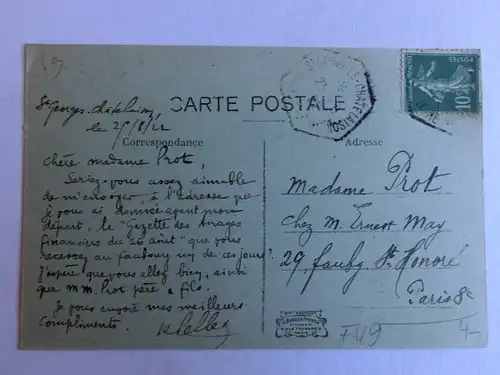 49
St Georges-Châtelaison,
le 29/8/22
CARTE POSTALE
Correspondance
Adresse
POSTES
10c
Chère madame Prot,
Seriez-vous assez aimable
de m'envoyer, à l'adresse que
je vous ai donnée avant mon
départ, la "Gazette des Tirages
financiers du 20 août" que vous
recevez au faubourg un de ces jours?
J'espère que vous allez bien, ainsi
que MM. Prot père & fils.
Je vous envoie mes meilleurs
compliments.
Madame Prot
chez M. Ernest May
29, faubg St Honoré
Paris 8e
F49
4-